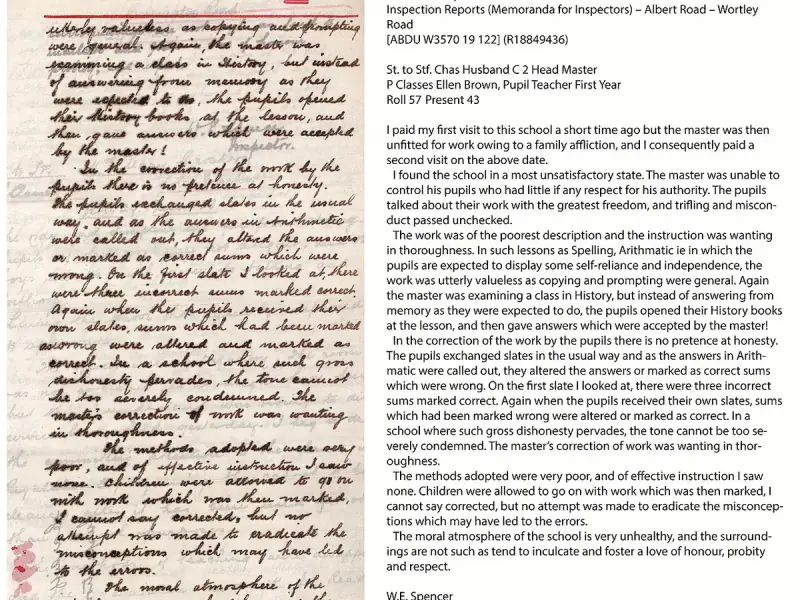 utterly valueless as copying and prompting
were general. Again, the master was
examining a class in History, but instead
of answering from memory as they
were expected to do, the pupils opened
their History books, at the lesson, and
then, gave answers which were accepted
by the master!
Inspector.
In the correction of the work by the
pupils there is no pretence at honesty.
The pupils exchanged slates in the usual
way, and as the answers in Arithmetic
were called out, they altered the answers
or marked as correct sums which were
wrong. On the first slate I looked at, there
were three incorrect sums marked correct.
Again when the pupils received their
own slates, sums which had been marked
as wrong were altered and marked as
correct. In a school where such gross
dishonesty pervades, the tone cannot
be too severely condemned. The
master's correction of work was wanting
in thoroughness.
The methods adopted were very
poor, and of effective instruction I saw
none. Children were allowed to go on
with work which was then marked,
I cannot say corrected, but no
attempt was made to eradicate the
misconceptions which may have led
to the errors.
The moral atmosphere of the
Inspection Reports (Memoranda for Inspectors) – Albert Road – Wortley
Road
[ABDU W3570 19 122] (R18849436)
St. to Stf. Chas Husband C 2 Head Master
P Classes Ellen Brown, Pupil Teacher First Year
Roll 57 Present 43
I paid my first visit to this school a short time ago but the master was then
unfitted for work owing to a family affliction, and I consequently paid a
second visit on the above date.
I found the school in a most unsatisfactory state. The master was unable to
control his pupils who had little if any respect for his authority. The pupils
talked about their work with the greatest freedom, and trifling and miscon-
duct passed unchecked.
The work was of the poorest description and the instruction was wanting
in thoroughness. In such lessons as Spelling, Arithmatic ie in which the
pupils are expected to display some self-reliance and independence, the
work was utterly valueless as copying and prompting were general. Again
the master was examining a class in History, but instead of answering from
memory as they were expected to do, the pupils opened their History books
at the lesson, and then gave answers which were accepted by the master!
In the correction of the work by the pupils there is no pretence at honesty.
The pupils exchanged slates in the usual way and as the answers in Arith-
matic were called out, they altered the answers or marked as correct sums
which were wrong. On the first slate I looked at, there were three incorrect
sums marked correct. Again when the pupils received their own slates, sums
which had been marked wrong were altered or marked as correct. In a
school where such gross dishonesty pervades, the tone cannot be too se-
verely condemned. The master's correction of work was wanting in thor-
oughness.
The methods adopted were very poor, and of effective instruction I saw
none. Children were allowed to go on with work which was then marked, I
cannot say corrected, but no attempt was made to eradicate the misconcep-
tions which may have led to the errors.
The moral atmosphere of the school is very unhealthy, and the surround-
ings are not such as tend to inculcate and foster a love of honour, probity
and respect.
W.E. Spencer